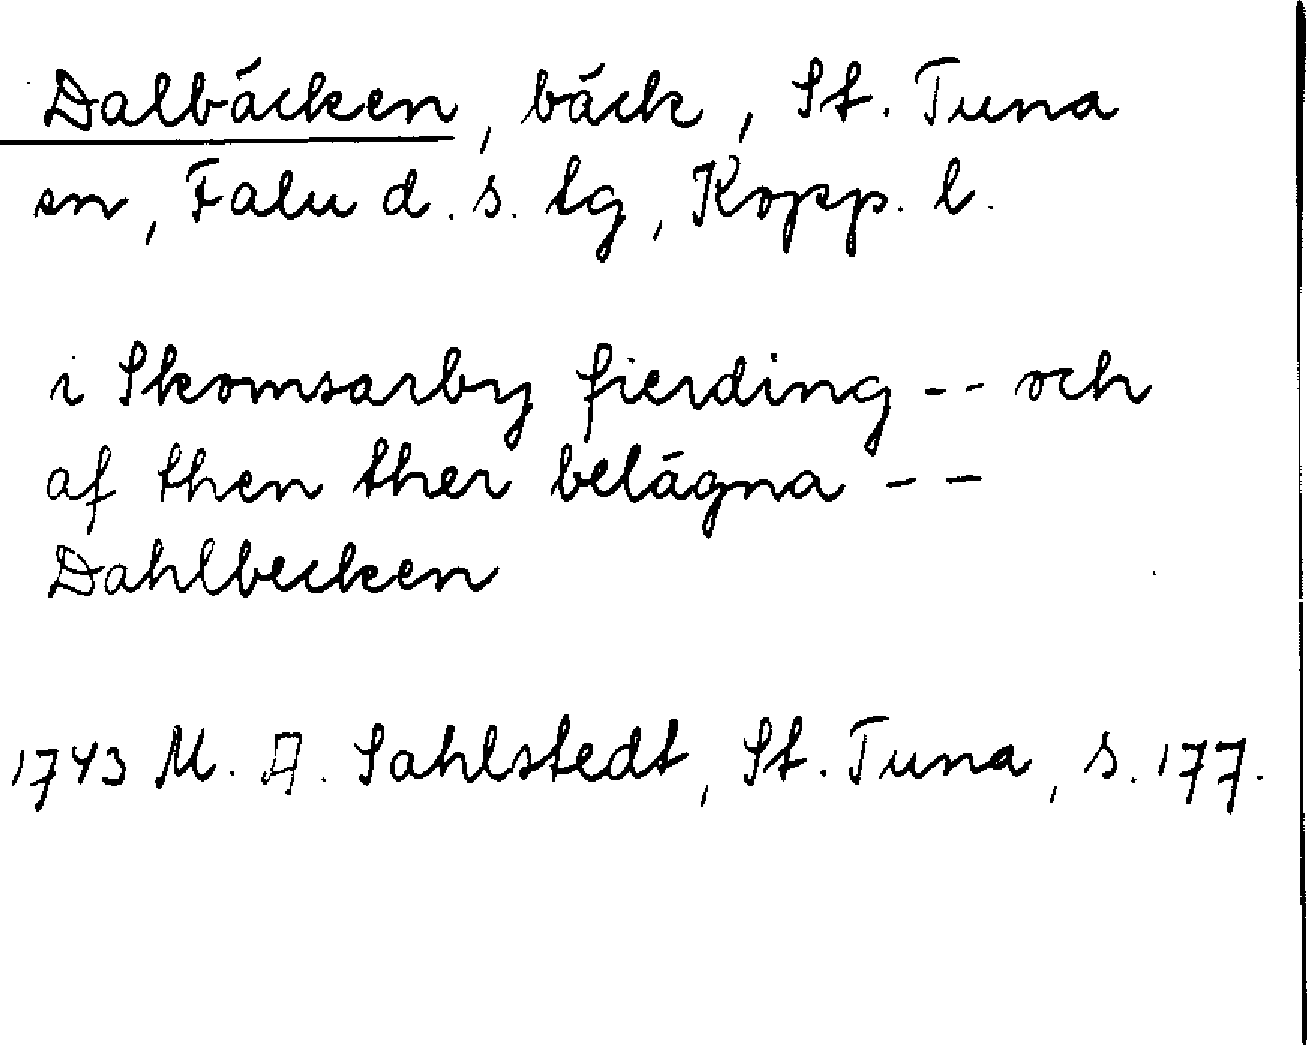 Dalbäcken, bäck, St. Tuna
sn, Falu d. s. tg, Kopp. l.
i Skomsarby fierding -- och
af then ther belägna --
Dahlbecken
1743 M. A. Sahlstedt, St. Tuna, s. 177.